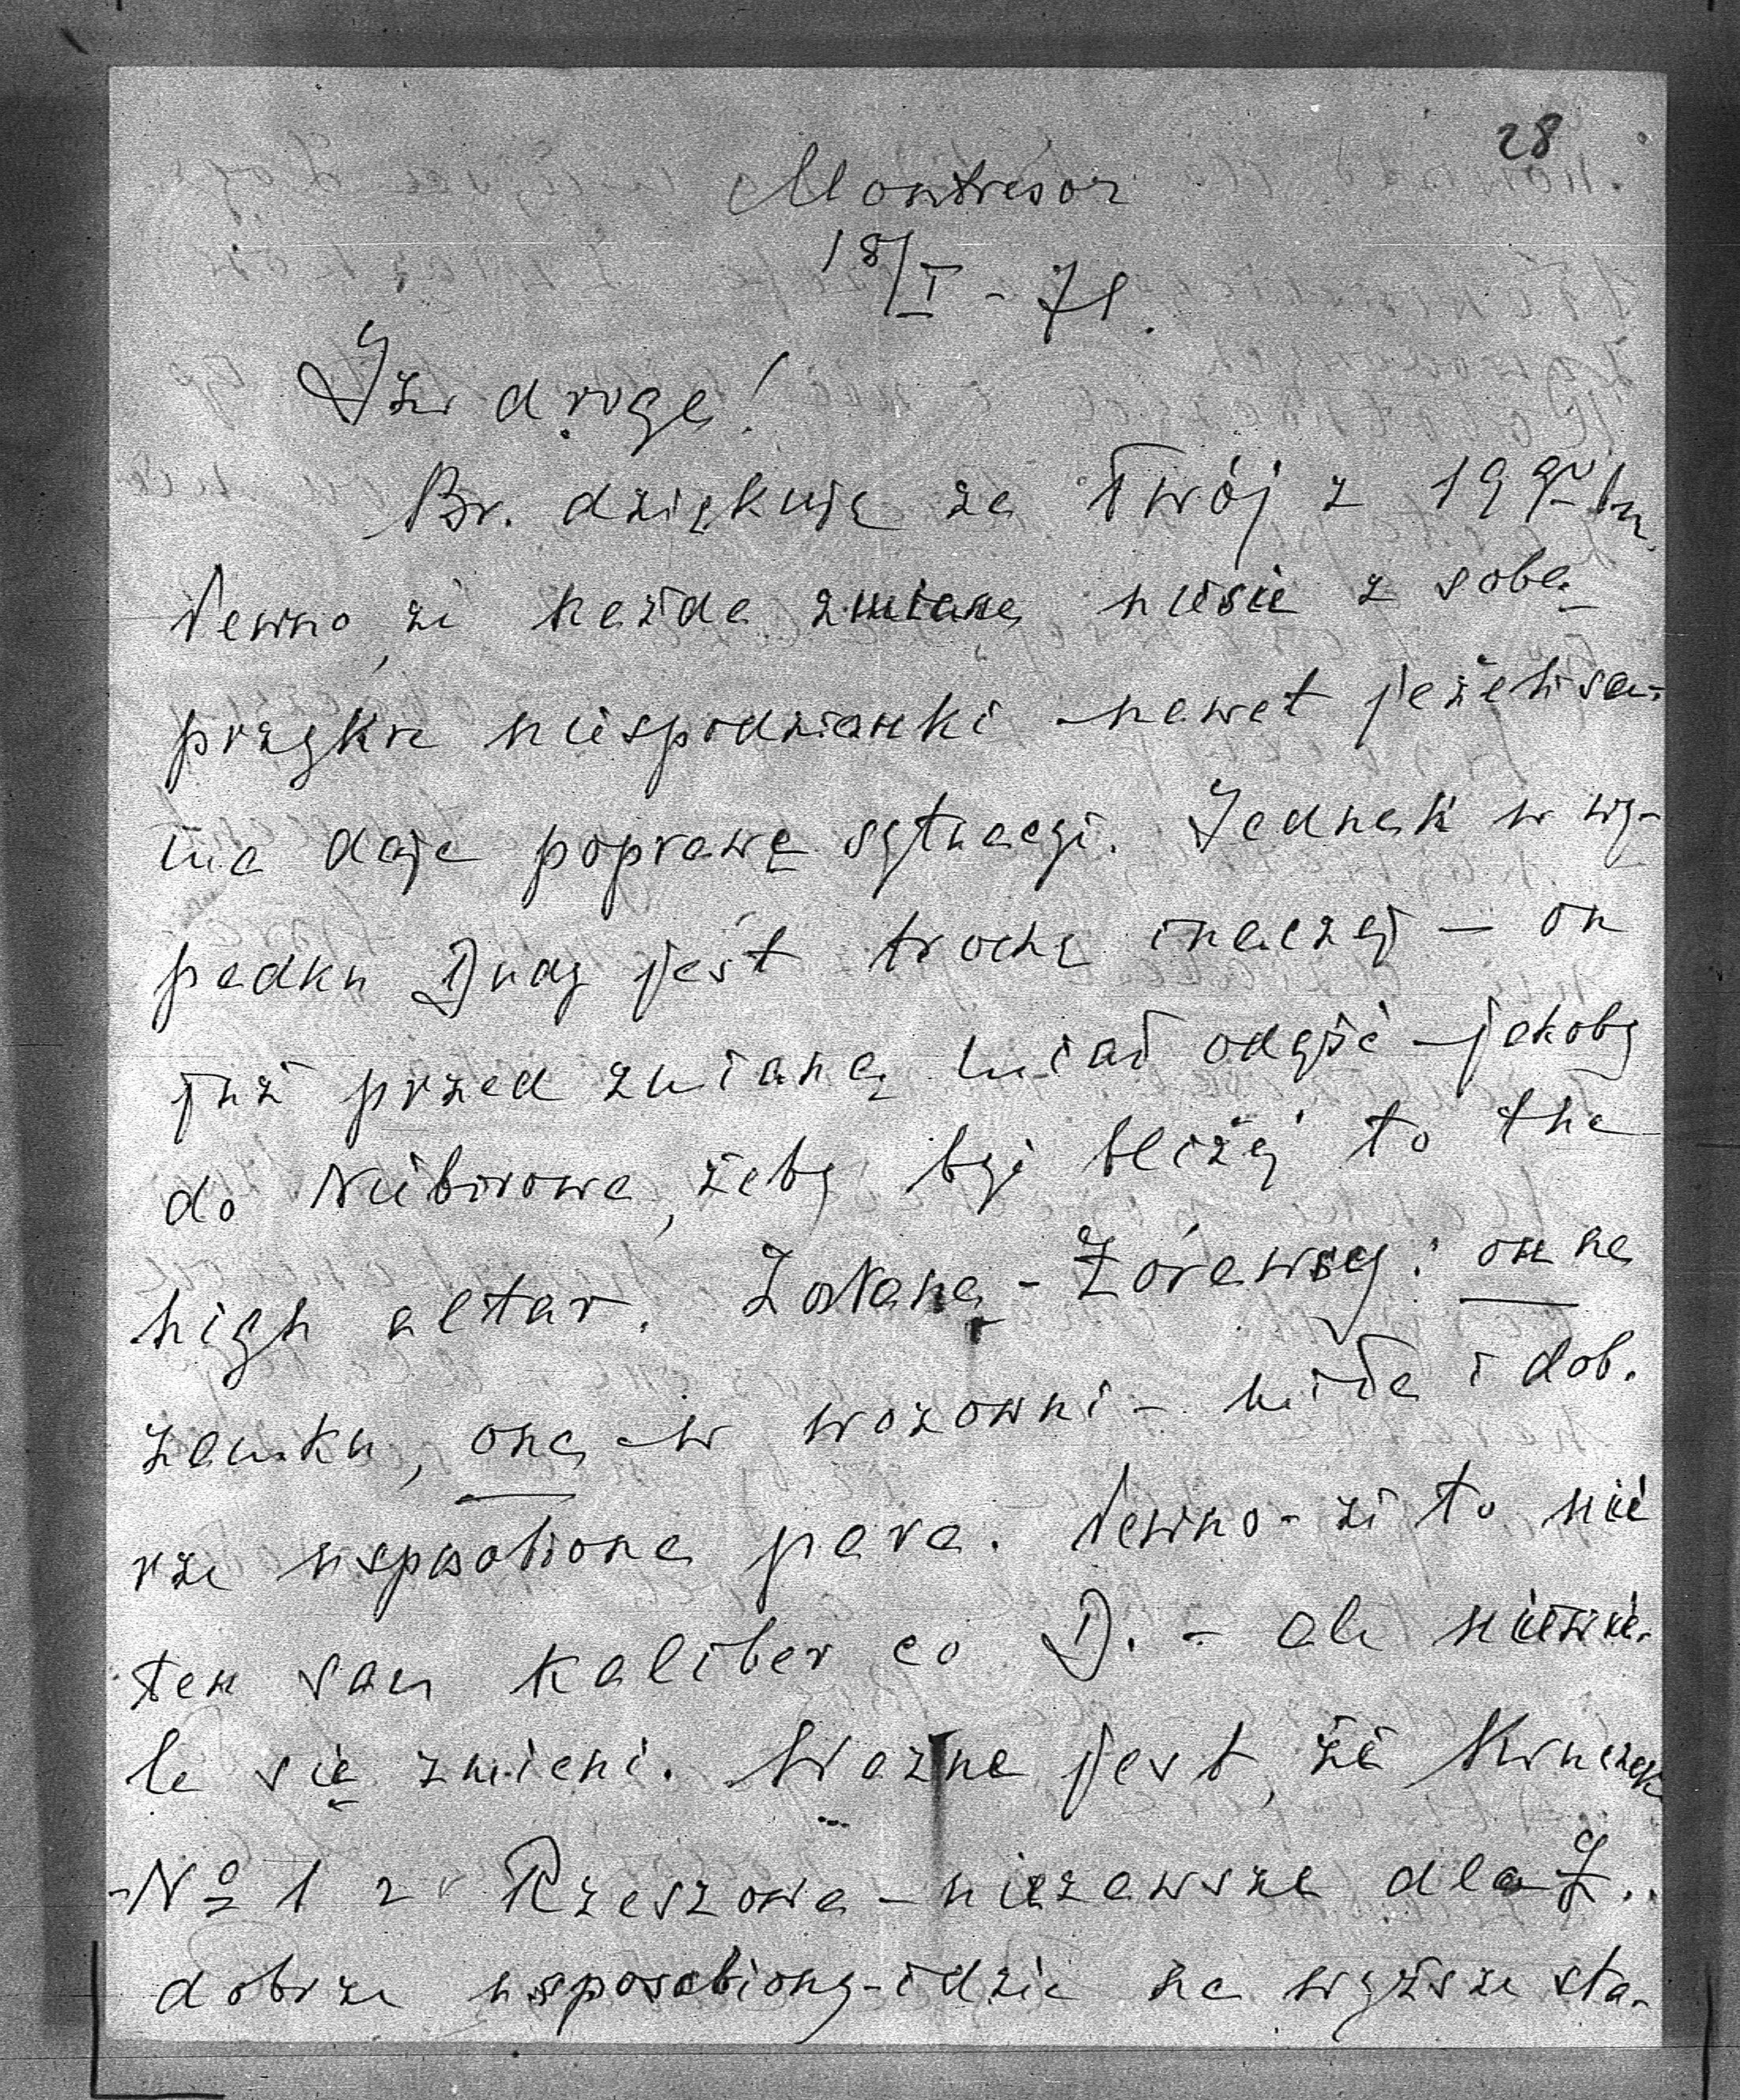 28
Montresor
18/I - 71.
Iza droga!
Br. dziękuję za Twój z 19
Pewno, że każda zmiana niesie z sobą
przykre niespodzianki - nawet jeżeli sa-
ma daje poprawę sytuacji. Jednak w wy-
padku Dudy jest trochę inaczej - on
już przed zmianą miał odejść - jakoby
do Nieborowa, żeby być bliżej to the
high altar. Zostaną - Żórawscy: on na
zamku, ona w wozowni - miła i dob.
rze usposobiona para. Pewno - że to nie
ten sam kaliber co D. - ale niewie-
le się zmieni. Ważne jest, że Kruczek
No 1 z Rzeszowa - niezawsze dla Ł.
dobrze usposobiony - idzie na wyższe sta-